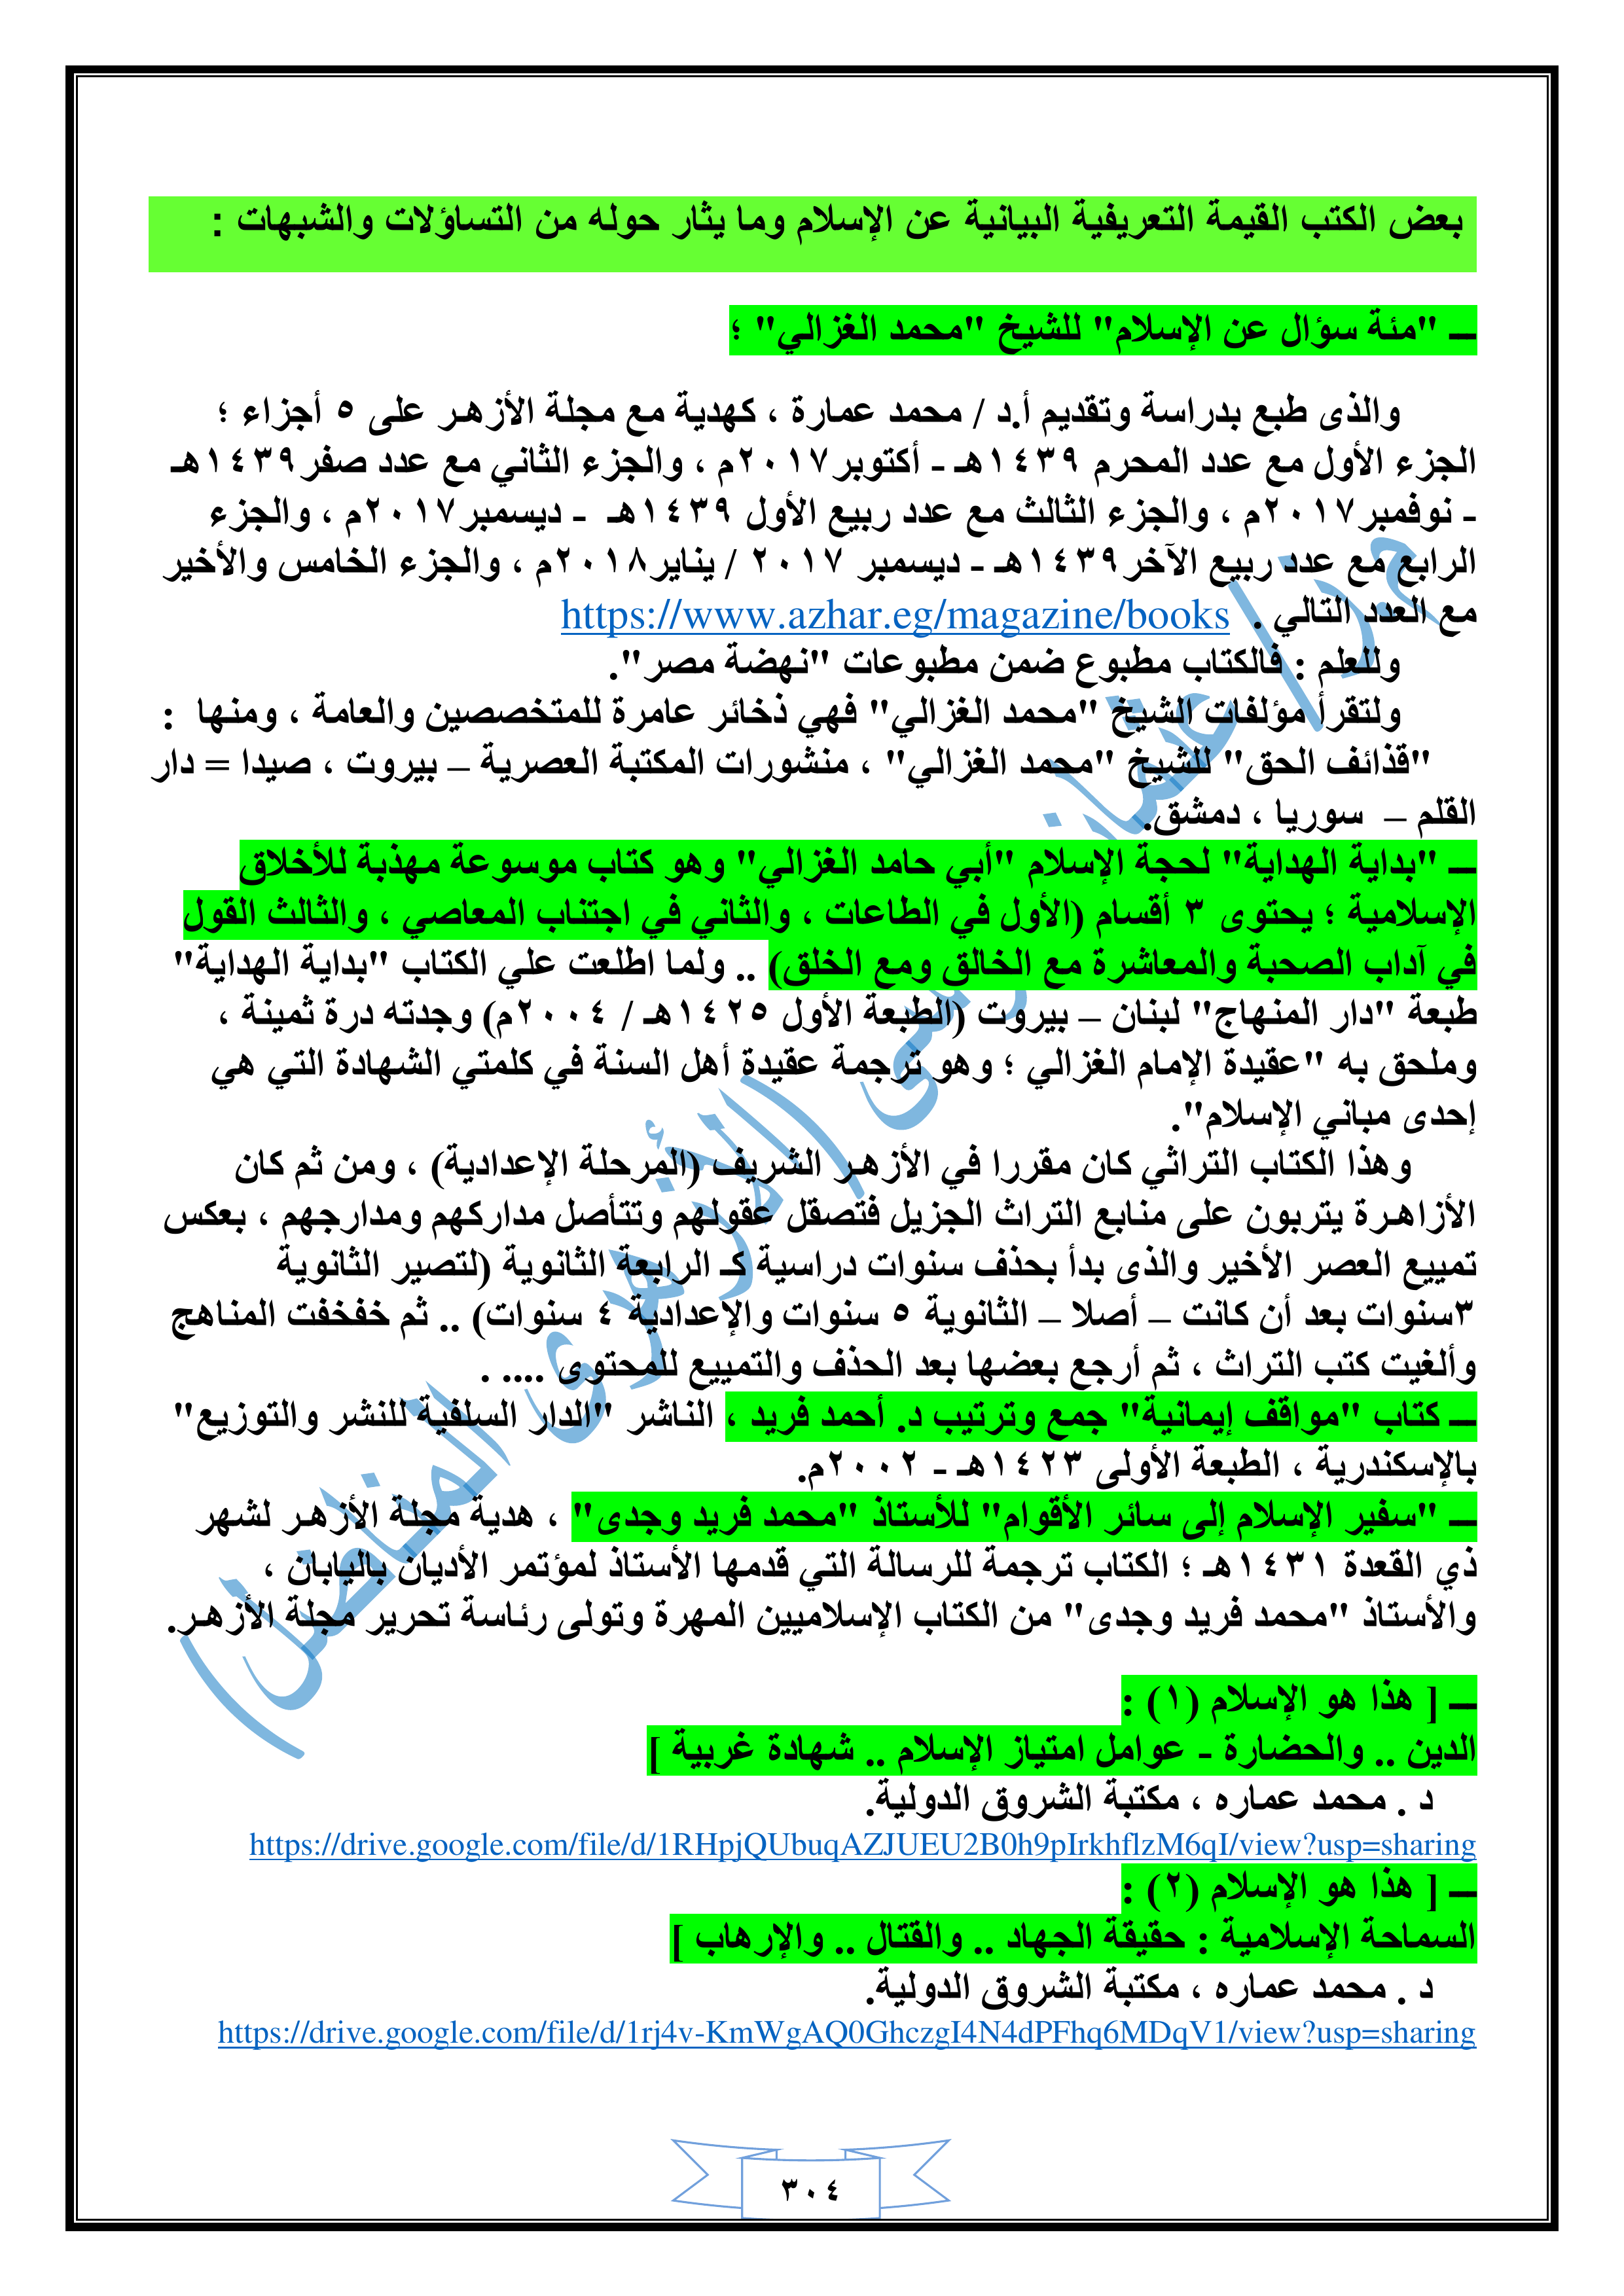 بعض الكتب القيمة التعريفية البيانية عن الإسلام وما يثار حوله من التساؤلات والشبهات :
ـــ "مئة سؤال عن الإسلام" للشيخ "محمد الغزالي" ؛
والذى طبع بدراسة وتقديم أ.د / محمد عمارة ، كهدية مع مجلة الأزهـر على ٥ أجزاء ؛
الجزء الأول مع عدد المحرم ١٤٣٩هـ - أكتوبر٢٠١٧م ، والجزء الثاني مع عدد صفر١٤٣٩هـ
- نوفمبر٢٠١٧م ، والجزء الثالث مع عدد ربيع الأول ١٤٣٩هـ - ديسمبر٢٠١٧م ، والجزء
الرابع مع عدد ربيع الآخر١٤٣٩هـ - ديسمبر ٢٠١٧ / يناير٢٠١٨م ، والجزء الخامس والأخير
مع العدد التالي . https://www.azhar.eg/magazine/books
وللعلم : فالكتاب مطبوع ضمن مطبوعات "نهضة مصر".
ولتقرأ مؤلفات الشيخ "محمد الغزالي" فهي ذخائر عامرة للمتخصصين والعامة ، ومنها :
"قذائف الحق" للشيخ "محمد الغزالي" ، منشورات المكتبة العصرية – بيروت ، صيدا = دار
القلم – سوريا ، دمشق.
ـــ "بداية الهداية" لحجة الإسلام "أبي حامد الغزالي" وهو كتاب موسوعة مهذبة للأخلاق
الإسلامية ؛ يحتوى ٣ أقسام (الأول في الطاعات ، والثاني في اجتناب المعاصي ، والثالث القول
في آداب الصحبة والمعاشرة مع الخالق ومع الخلق) .. ولما اطلعت علي الكتاب "بداية الهداية"
طبعة "دار المنهاج" لبنان – بيروت (الطبعة الأول ١٤٢٥هـ / ٢٠٠٤م) وجدته درة ثمينة ،
وملحق به "عقيدة الإمام الغزالي ؛ وهو ترجمة عقيدة أهل السنة في كلمتي الشهادة التي هي
إحدى مباني الإسلام".
وهذا الكتاب التراثي كان مقررا في الأزهـر الشريف (المرحلة الإعدادية) ، ومن ثم كان
الأزاهـرة يتربون على منابع التراث الجزيل فتصقل عقولهم وتتأصل مداركهم ومدارجهم ، بعكس
تمييع العصر الأخير والذى بدأ بحذف سنوات دراسية كـ الرابعة الثانوية (لتصير الثانوية
٣سنوات بعد أن كانت – أصلا – الثانوية ٥ سنوات والإعدادية ٤ سنوات) .. ثم خفخفت المناهج
وألغيت كتب التراث ، ثم أرجع بعضها بعد الحذف والتمييع للمحتوى .... .
ـــ كتاب "مواقف إيمانية" جمع وترتيب د. أحمد فريد ، الناشر "الدار السلفية للنشر والتوزيع"
بالإسكندرية ، الطبعة الأولى ١٤٢٣هـ - ٢٠٠٢م.
ـــ "سفير الإسلام إلى سائر الأقوام" للأستاذ "محمد فريد وجدى" ، هدية مجلة الأزهـر لشهر
ذي القعدة ١٤٣١هـ ؛ الكتاب ترجمة للرسالة التي قدمها الأستاذ لمؤتمر الأديان باليابان ،
والأستاذ "محمد فريد وجدى" من الكتاب الإسلاميين المهرة وتولى رئاسة تحرير مجلة الأزهـر.
ـــ [ هذا هو الإسلام (١) :
الدين .. والحضارة - عوامل امتياز الإسلام .. شهادة غربية ]
د . محمد عماره ، مكتبة الشروق الدولية.
https://drive.google.com/file/d/1RHpjQUbuqAZJUEU2B0h9pIrkhflzM6qI/view?usp=sharing
ـــ [ هذا هو الإسلام (٢) :
السماحة الإسلامية : حقيقة الجهاد .. والقتال .. والإرهاب ]
د . محمد عماره ، مكتبة الشروق الدولية.
https://drive.google.com/file/d/1rj4v-KmWgAQ0GhczgI4N4dPFhq6MDqV1/view?usp=sharing
٣٠٤